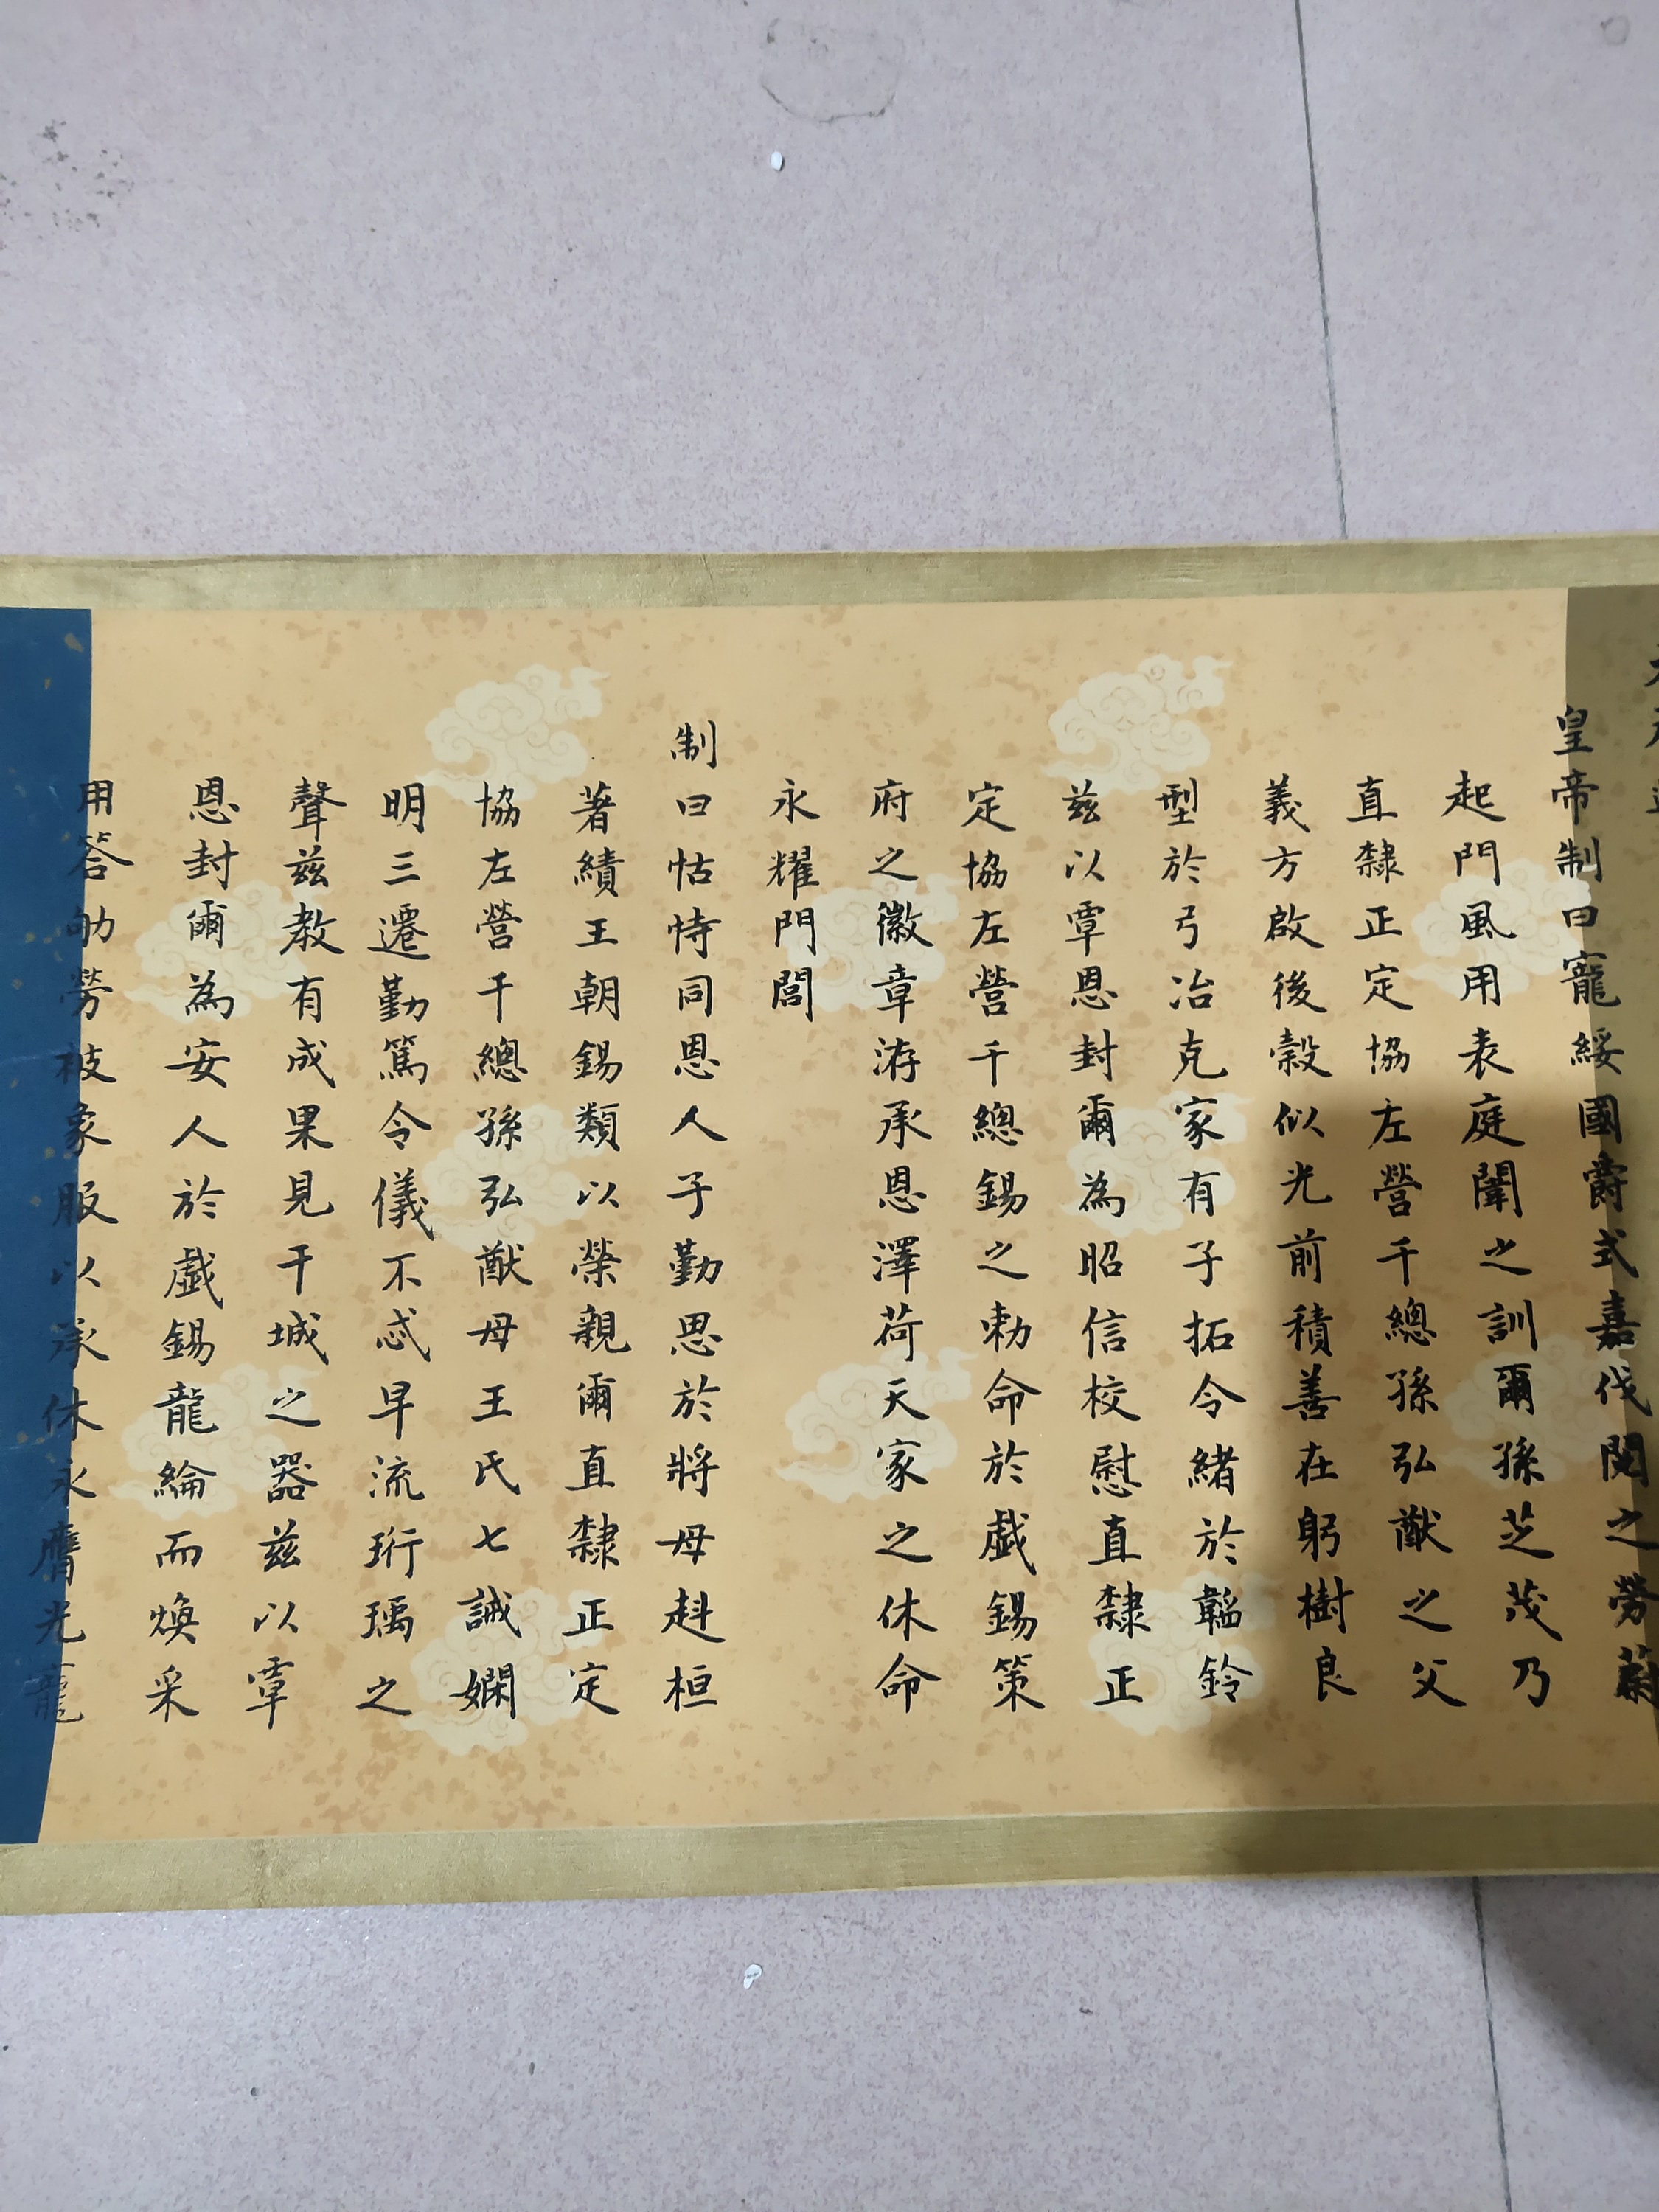 皇帝制曰寵綏國爵式嘉伐閱之勞蔚
起門風用表庭闈之訓爾孫芝茂乃
直隸正定協左營千總孫弘猷之父
義方啟後穀似光前積善在躬樹良
型於弓冶克家有子拓令緒於韜鈴
茲以覃恩封爾為昭信校慰直隸正
定協左營千總錫之勅命於戲錫策
府之徽章洊承恩澤荷天家之休命
永耀門閭
制曰怙恃同恩人子勤思於將母赳桓
著績王朝錫類以榮親爾直隸正定
協左營千總孫弘猷母王氏七誡嫻
明三遷勤篤令儀不忒早流珩瑀之
聲茲教有成果見干城之器茲以覃
恩封爾為安人於戲錫龍綸而煥采
用答劬勞被象服以承休永膺光寵